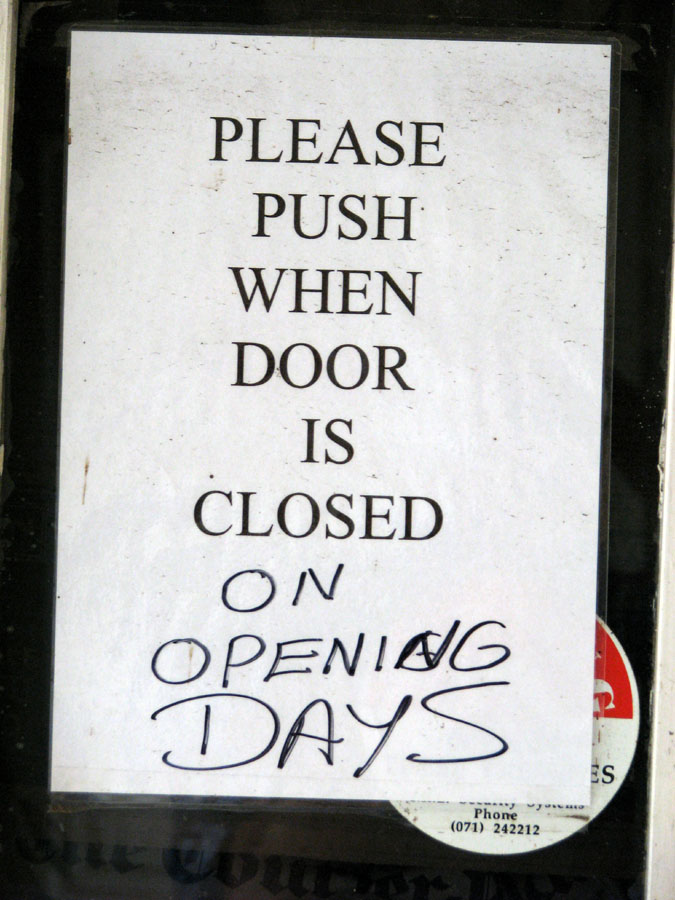 PLEASE
PUSH
WHEN
DOOR
IS
CLOSED
ON
OPENING
DAYS
ES
Security Systems
Phone
(071) 242212
The Courier